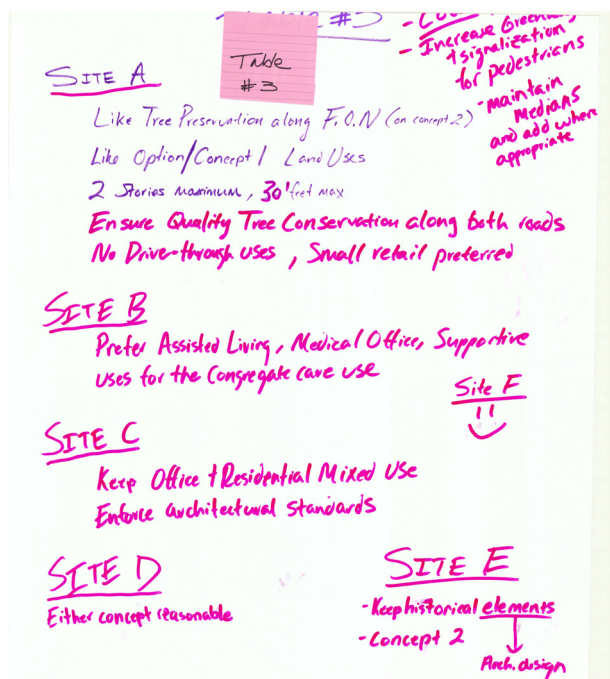 #3
Table
#3
- Increase Green
+ signalization
for pedestrians
- maintain
Medians
and add where
appropriate
SITE A
Like Tree Preservation along F.O.N (on concept 2)
Like Option/Concept 1 Land Uses
2 Stories maximum, 30' feet max
Ensure Quality Tree Conservation along both roads
No Drive-through uses, Small retail preferred
SITE B
Prefer Assisted Living, Medical Office, Supportive
uses for the Congregate care use
Site F
SITE C
Keep Office + Residential Mixed Use
Enforce architectural standards
SITE D
Either concept reasonable
SITE E
- Keep historical elements
- Concept 2
Arch. design